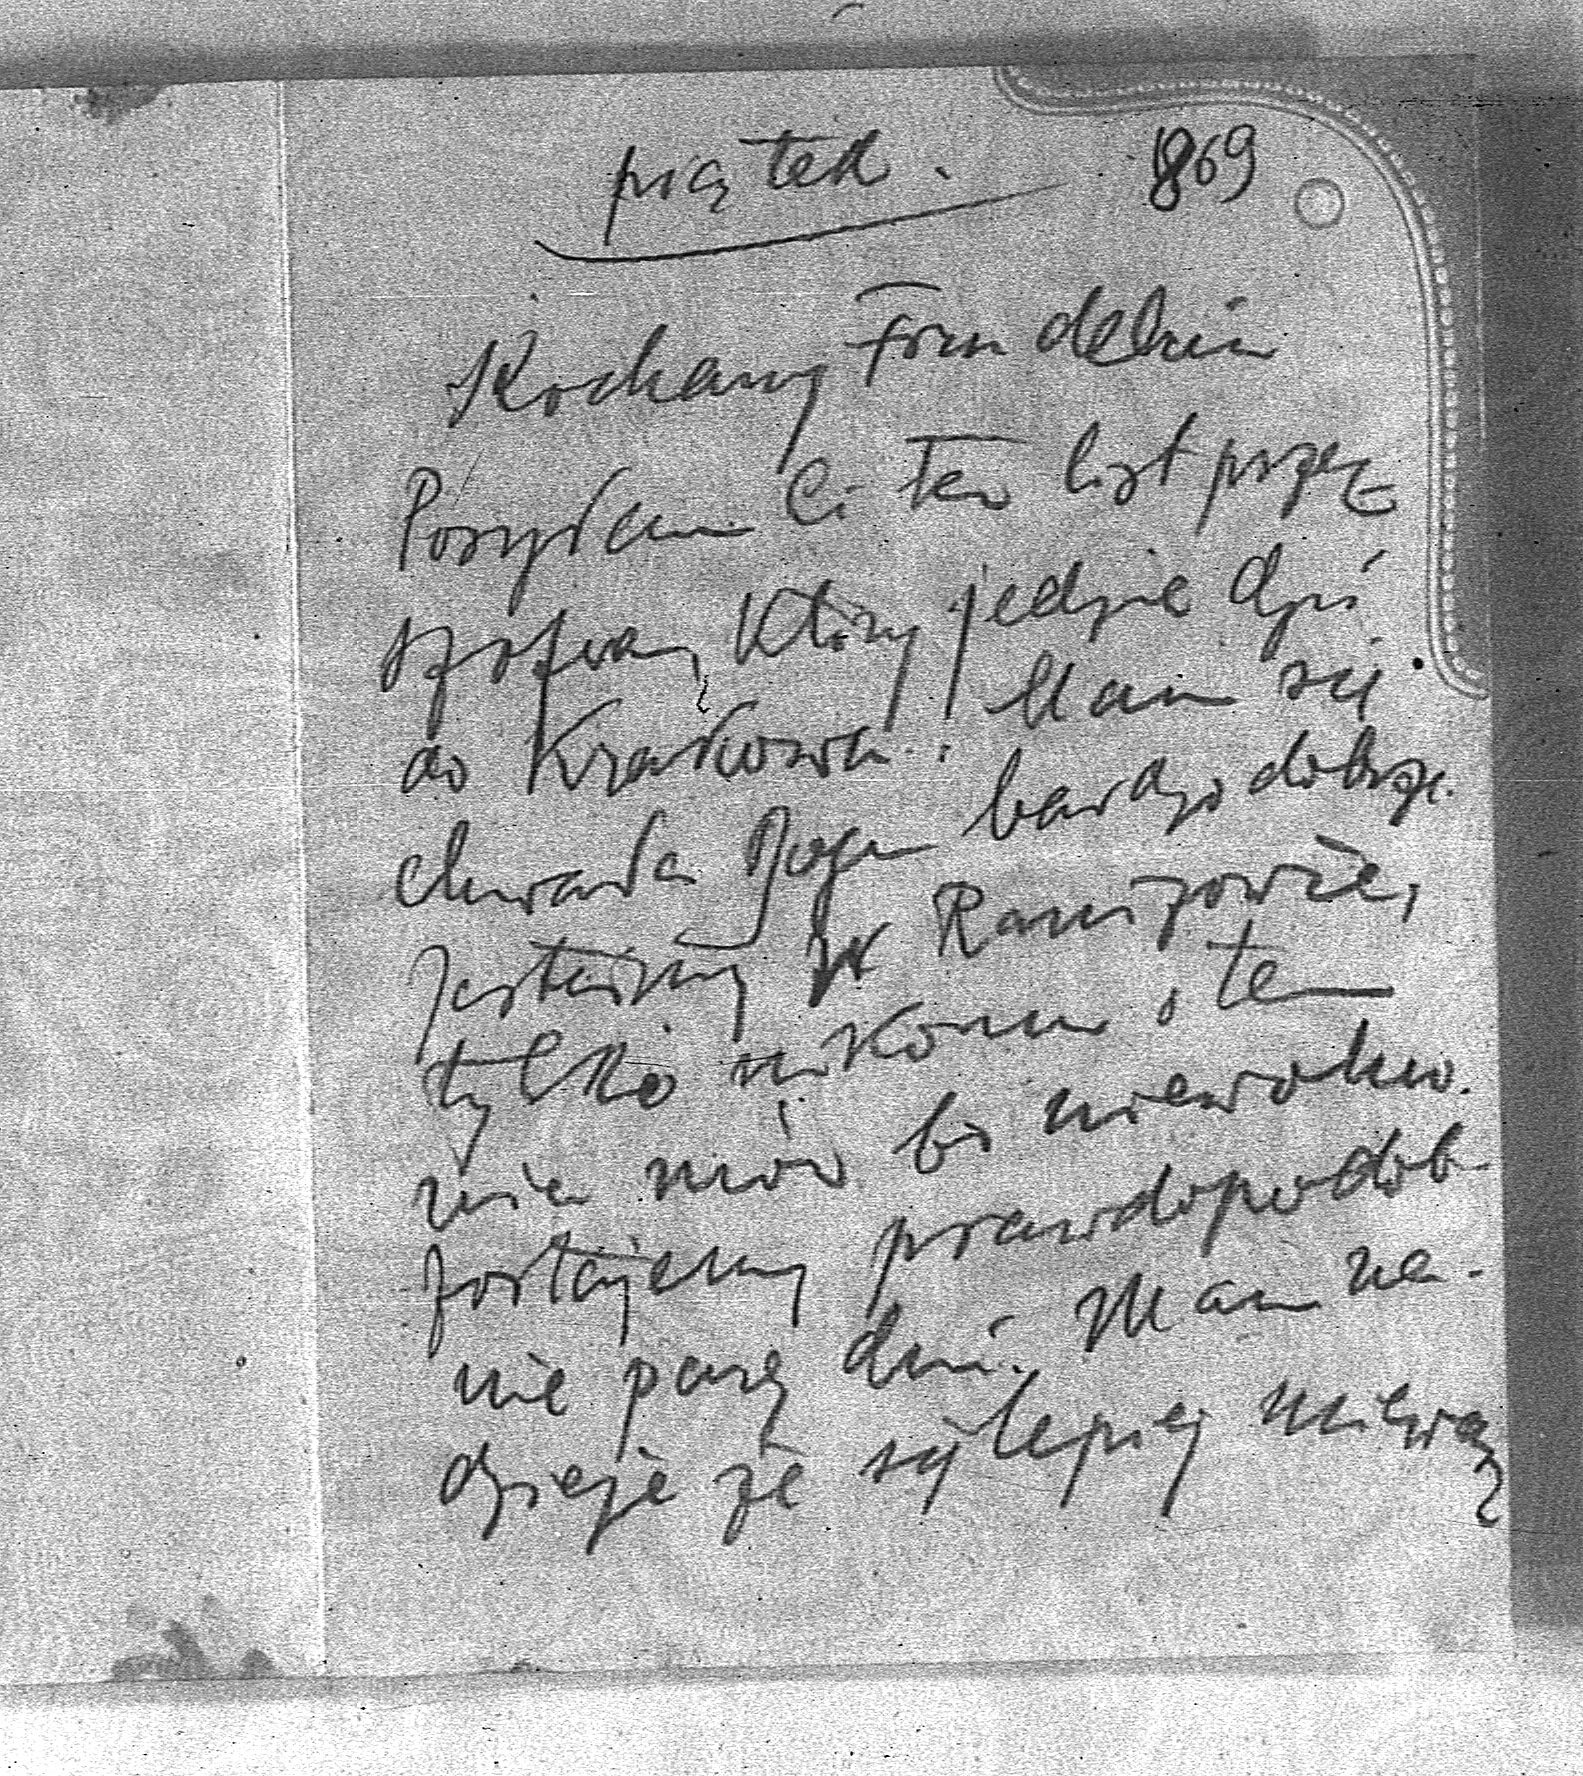 piątek. 869
Kochany Frendelciu
Posyłam Ci ten list przez
szofera, który jedzie dziś
do Krakowa. Mam się
chwała Bogu bardzo dobrze.
Jesteśmy w Raniżowie,
tylko nikomu o tem
nie mów bo niewolno.
Zostajemy prawdopodob-
nie parę dni. Mam na-
dzieje że się lepiej miewasz